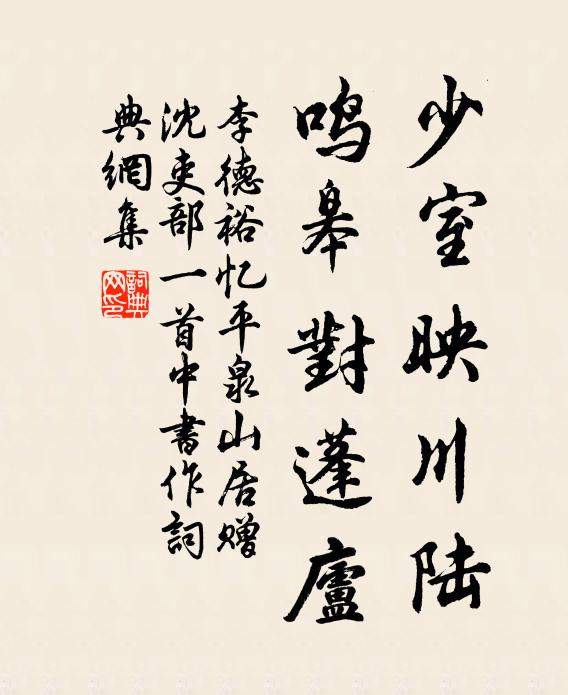 少室映川陆
鸣皋對蓬廬
李德裕忆平泉山居赠
沈吏部一首中書作詞
典網集
詞典
网印